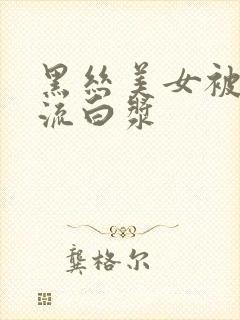 黑丝美女被
流白漿
龔格尔